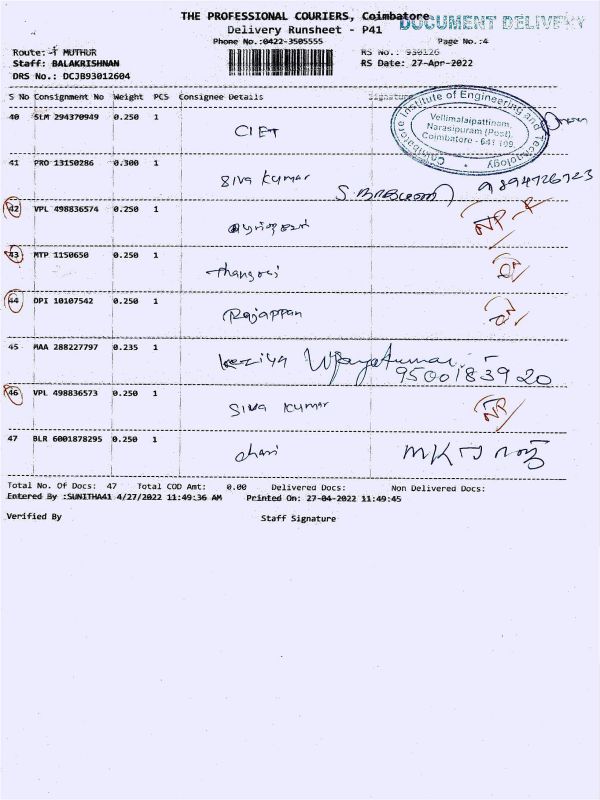 THE PROFESSIONAL COURIERS, Coimbatore
DOCUMENT DELIVERY
Delivery Runsheet - P41
Phone No.:0422-3505555
Page No.:4
Route: T MUTHUR
RS No.: 930126
Staff: BALAKRISHNAN
RS Date: 27-Apr-2022
DRS No.: DCJB93012604
S No Consignment No Weight PCS Consignee Details Signature
Coimbatore Institute of Engineering and Technology
Vellimalaipattinam,
Narasipuram (Post),
Coimbatore - 641 109.
40 SLM 294370949 0.250 1 CIET
41 PRO 13150286 0.300 1 Siva Kumar
42 VPL 498836574 0.250 1 NP
43 MTP 1150650 0.250 1 thangraj
44 OPI 10107542 0.250 1 Rajappan
45 MAA 288227797 0.235 1 keziya Vijayakumar
9500183920
46 VPL 498836573 0.250 1 Siva Kumar NP
47 BLR 6001878295 0.250 1
Total No. Of Docs: 47 Total COD Amt: 0.00 Delivered Docs: Non Delivered Docs:
Entered By :SUNITHA41 4/27/2022 11:49:36 AM Printed On: 27-04-2022 11:49:45
Verified By Staff Signature